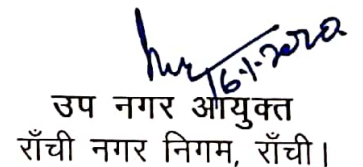 16-1-2020
उप नगर आयुक्त
राँची नगर निगम, राँची।